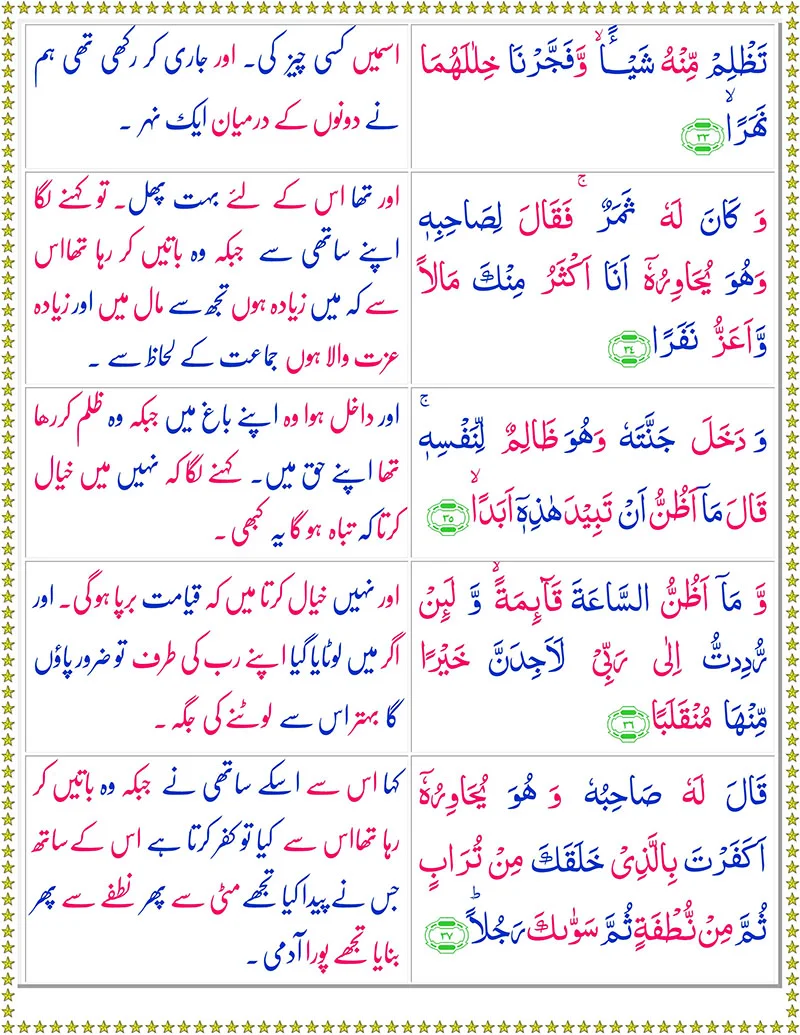 تَظْلِمْ مِّنْهُ شَيْـًٔاۙ وَّفَجَّرْنَا خِلٰلَهُمَا
نَهَرًاۙ ۝۳۳
اسمیں کسی چیز کی۔ اور جاری کر رکھی تھی ہم
نے دونوں کے درمیان ایک نہر ۔
وَ كَانَ لَهٗ ثَمَرٌۚ فَقَالَ لِصَاحِبِهٖ
وَهُوَ يُحَاوِرُهٗۤ اَنَا اَكْثَرُ مِنْكَ مَالًا
وَّاَعَزُّ نَفَرًا ۝۳۴
اور تھا اس کے لئے بہت پھل۔ تو کہنے لگا
اپنے ساتھی سے جبکہ وہ باتیں کر رہا تھااس
سے کہ میں زیادہ ہوں تجھ سے مال میں اور زیادہ
عزت والا ہوں جماعت کے لحاظ سے ۔
وَ دَخَلَ جَنَّتَهٗ وَهُوَ ظَالِمٌ لِّنَفْسِهٖۚ
قَالَ مَاۤ اَظُنُّ اَنْ تَبِيْدَ هٰذِهٖۤ اَبَدًاۙ ۝۳۵
اور داخل ہوا وہ اپنے باغ میں جبکہ وہ ظلم کررہا
تھا اپنے حق میں۔ کہنے لگا کہ نہیں میں خیال
کرتا کہ تباہ ہو گا یہ کبھی ۔
وَّ مَاۤ اَظُنُّ السَّاعَةَ قَآىِٕمَةًۙ وَّ لَىِٕنْ
رُّدِدتُّ اِلٰى رَبِّيْ لَاَجِدَنَّ خَيْرًا
مِّنْهَا مُنْقَلَبًا ۝۳۶
اور نہیں خیال کرتا میں کہ قیامت برپا ہوگی۔ اور
اگر میں لوٹایا گیا اپنے رب کی طرف تو ضرور پاؤں
گا بہتر اس سے لوٹنے کی جگہ ۔
قَالَ لَهٗ صَاحِبُهٗ وَ هُوَ يُحَاوِرُهٗۤ
اَكَفَرْتَ بِالَّذِيْ خَلَقَكَ مِنْ تُرَابٍ
ثُمَّ مِنْ نُّطْفَةٍ ثُمَّ سَوّٰىكَ رَجُلًاؕ ۝۳۷
کہا اس سے اسکے ساتھی نے جبکہ وہ باتیں کر
رہا تھااس سے کیا تو کفر کرتا ہے اس کے ساتھ
جس نے پیدا کیا تجھے مٹی سے پھر نطفے سے پھر
بنایا تجھے پورا آدمی ۔